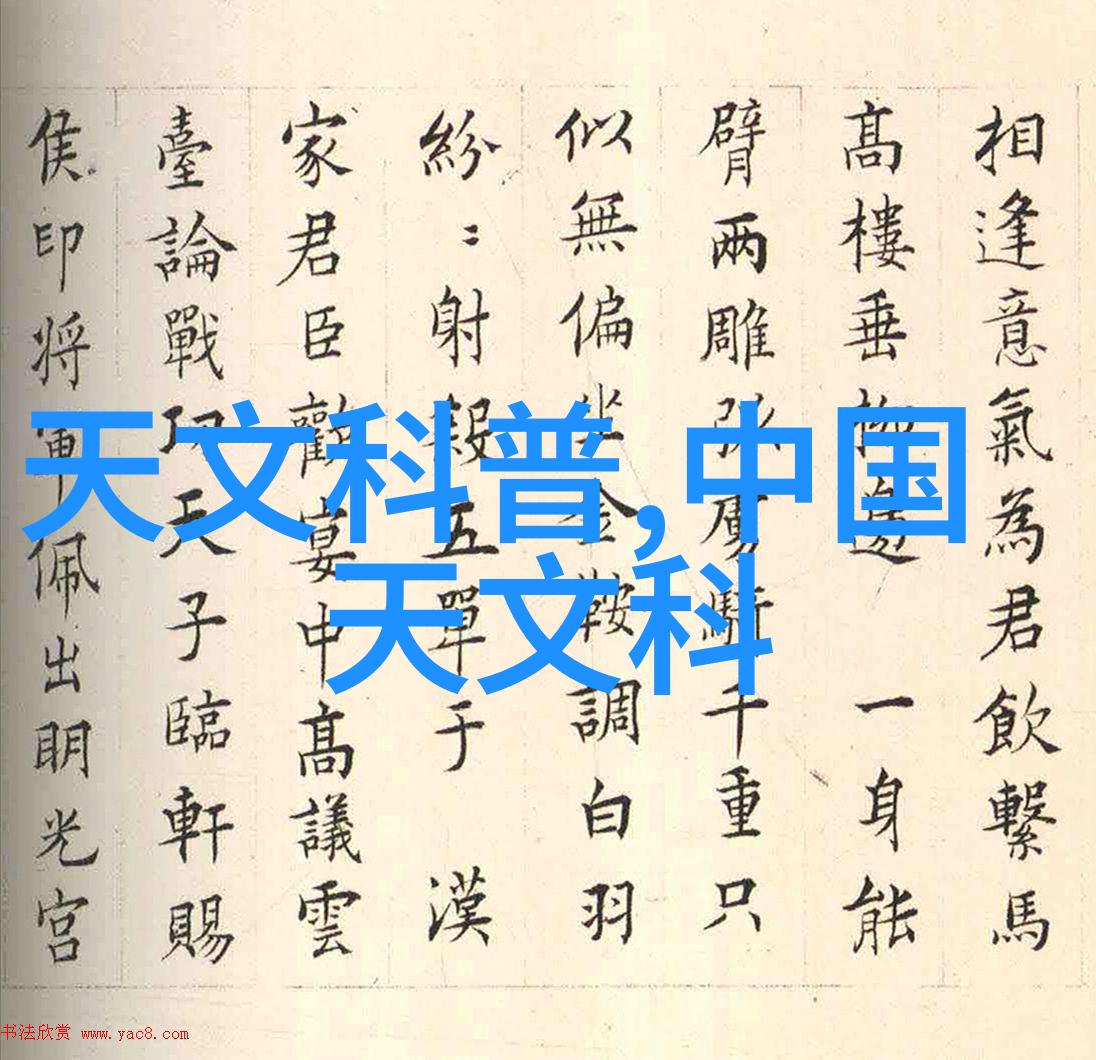 相逢意氣為君飲繫馬
髙樓垂柳邊 一身能
臂兩雕弧虜騎千重只
似無偏坐金鞍調白羽
紛〻射殺五單于 漢
家君臣歡宴中髙議雲
臺論戰功天子臨軒賜
侯印将軍佩出明光宮
天文科普,中国
天文科
书法欣赏 www.yac8.com